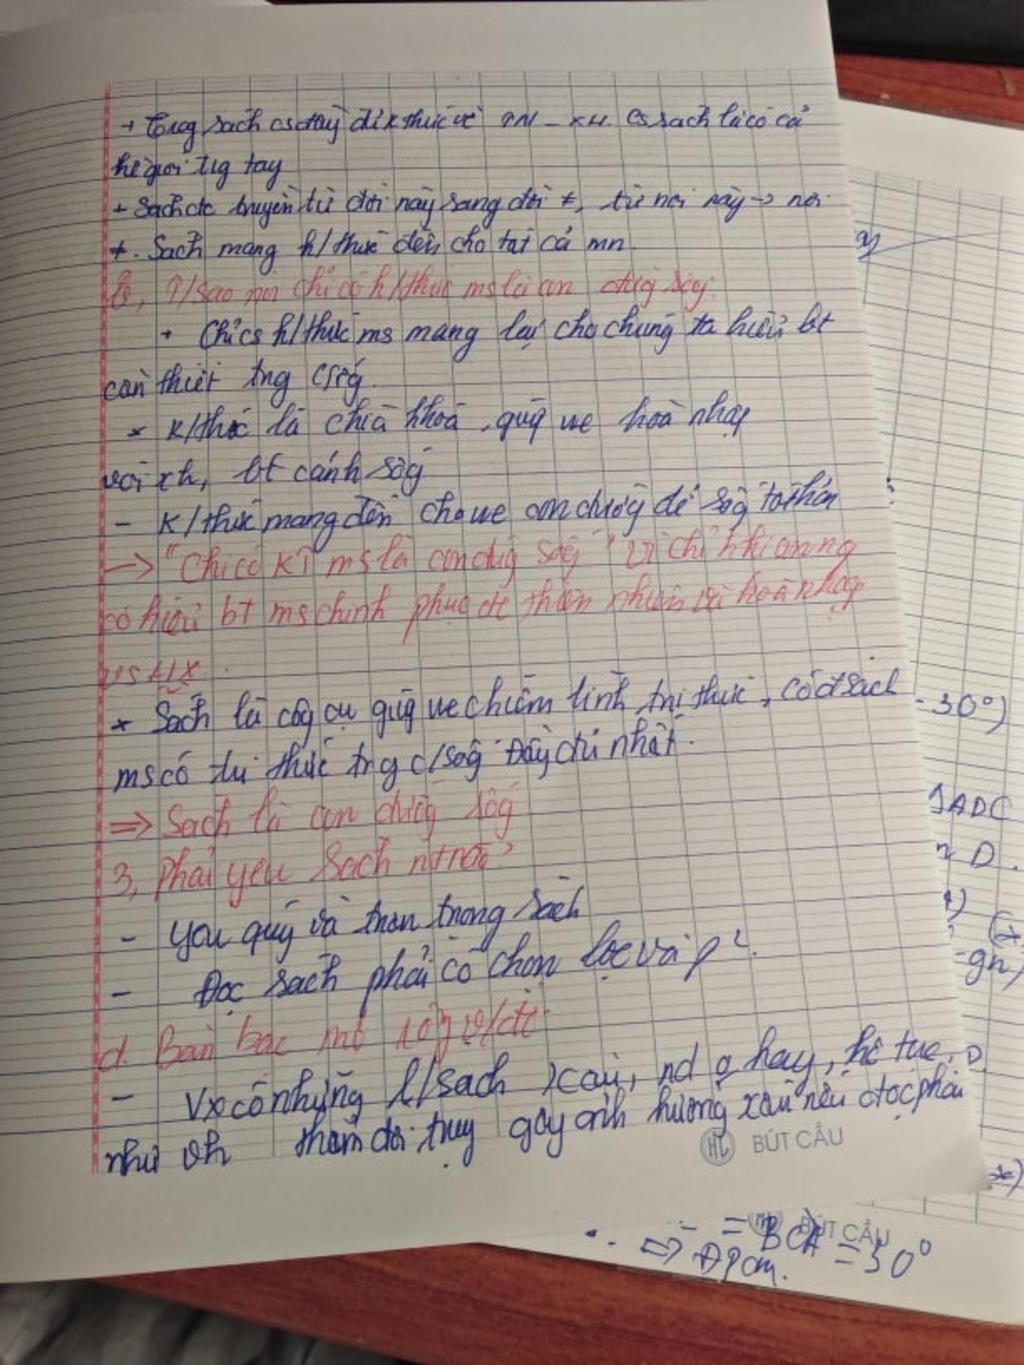 + Trong sách cs đầy đủ k thức về TN - XH. Cs sách là có cả
thế giới tng tay
+ Sách đc truyền từ đời này sang đời ≠, từ nơi này → nơi
+. Sách mang k/thức đến cho tất cả mn.
b, T/sao nói chỉ có k/thức ms là con đườg sốg.
+ Chỉ cs k/thức ms mang lại cho chúng ta hiểu bt
cần thiết tng c/sốg.
* K/thức là chìa khoá, giúp hoà nhập
với xh, bt cánh sốg
- K/thức mang đến cho con đườg để sốg
→ "Chỉ có KT ms là con đườg sốg" vì chỉ khi con ng
có hiểu bt ms chinh phục đc thiên nhiên và hoà nhập
vs XH.
* Sách là côg cụ giúp chiếm lĩnh tri thức, có sách
ms có tri thức tng c/sốg đầy đủ nhất.
⇒ Sách là con đườg sốg
3, Phải yêu sách ntnào?
- yêu quý và trân trọng sách
- Đọc sách phải có chọn lọc và p².
d. Bàn bạc mở rộg v/đề
- Vx có những l/sách xấu, nd o hay, k tục,
như vh đồi trụy gây ảnh hưởng xấu nếu đọc phải
HL BÚT CẦU
-30°)
ADC
D.
BÚT CẦU
= BCA = 30°
⇒ ĐPCM.